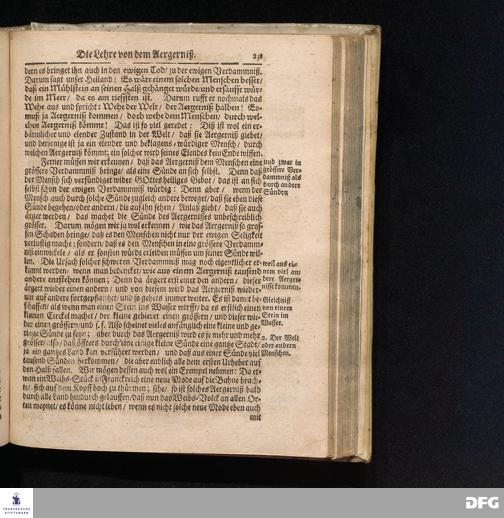 Die Lehre von dem Aergerniß. 231
dern es bringet ihn auch in den ewigen Tod/ zu der ewigen Verdammniß.
Darum sagt unser Heiland: Es wäre einem solchen Menschen besser/
daß ein Mühlstein an seinen Halß gehänget würde/ und ersäufft wür-
de im Meer/ da es am tieffsten ist. Darum rufft er nochmals das
Wehe aus und spricht: Wehe der Welt/ der Aergerniß halben! Es
muß ja Aergerniß kommen/ doch wehe dem Menschen/ durch wel-
chen Aergerniß kömmt! Das ist so viel geredet: Diß ist wol ein er-
bärmlicher und elender Zustand in der Welt/ daß sie Aergerniß giebet/
und derjenige ist ja ein elender und beklagens-würdiger Mensch/ durch
welchen Aergerniß kömmt; ein solcher wird seines Elendes kein Ende wissen.
Ferner müssen wir erkennen/ daß das Aergerniß dem Menschen eine
grössere Verdammniß bringe/ als eine Sünde an sich selbst. Denn daß
der Mensch sich versündiget wider GOttes heiliges Gebot/ das ist an sich
selbst schon der ewigen Verdammniß würdig: Denn aber/ wenn der
Mensch auch durch solche Sünde zugleich andere beweget/ daß sie eben diese
Sünde begehen/ oder andern/ die auf ihn sehen/ Anlaß giebt/ daß sie auch
ärger werden/ das machet die Sünde des Aergernisses unbeschreiblich
grösser. Darum mögen wir ja wol erkennen/ wie das Aergerniß so gros-
sen Schaden bringe/ daß es den Menschen nicht nur der ewigen Seligkeit
verlustig mache; sondern/ daß es den Menschen in eine grössere Verdamm-
niß einwickele/ als er sonsten würde erleiden müssen um seiner Sünde wil-
len. Die Ursach solcher schweren Verdammniß mag noch eigentlicher er-
kannt werden/ wenn man bedencket/ wie aus einem Aergerniß tausend
andere entstehen können; Denn da ärgert erst einer den andern/ dieser
ärgert wieder einen andern/ und von diesem wird das Aergerniß wieder-
um auf andere fortgepflantzet/ und so gehets immer weiter. Es ist damit be-
schaffen/ als wenn man einen Stein ins Wasser wirfft/ da es erstlich einen
kleinen Circkel machet/ der kleine gebieret einen grössern/ und dieser wie-
der einen grössern/ und s.f. Also scheinet vieles anfänglich eine kleine und ge-
ringe Sünde zu seyn; aber durch das Aergerniß wird es je mehr und mehr
grösser/ daß öffters durch eine einige kleine Sünde eine gantze Stadt/
ja ein gantzes Land kan verführet werden/ und daß aus einer Sünde viel
tausend Sünden herkommen/ die aber endlich alle dem ersten Urheber auf
den Halß fallen. Wir mögen dessen auch wol ein Exempel nehmen: Da et-
wan ein Weibs-Stück in Franckreich eine neue Mode auf die Bahne brach-
te/ sich auf dem Kopff hoch zu thürmen; sihe/ so ist solches Aergerniß bald
durch alle Land hindurch gelauffen/ daß nun das Weibs-Volck an allen Or-
ten meynet/ es könne nicht leben/ wenn es nicht solche neue Mode eben auch
mit
und zwar in
grössere Ver-
dammniß als
durch andere
Sünden
weil aus ei-
nem viel an-
dere Aerger-
nisse kommen.
Gleichniß
von einem
Stein im
Wasser.
2. Der Welt
oder andern
Menschen.
FRANCKESCHE
STIFTUNGEN
DFG